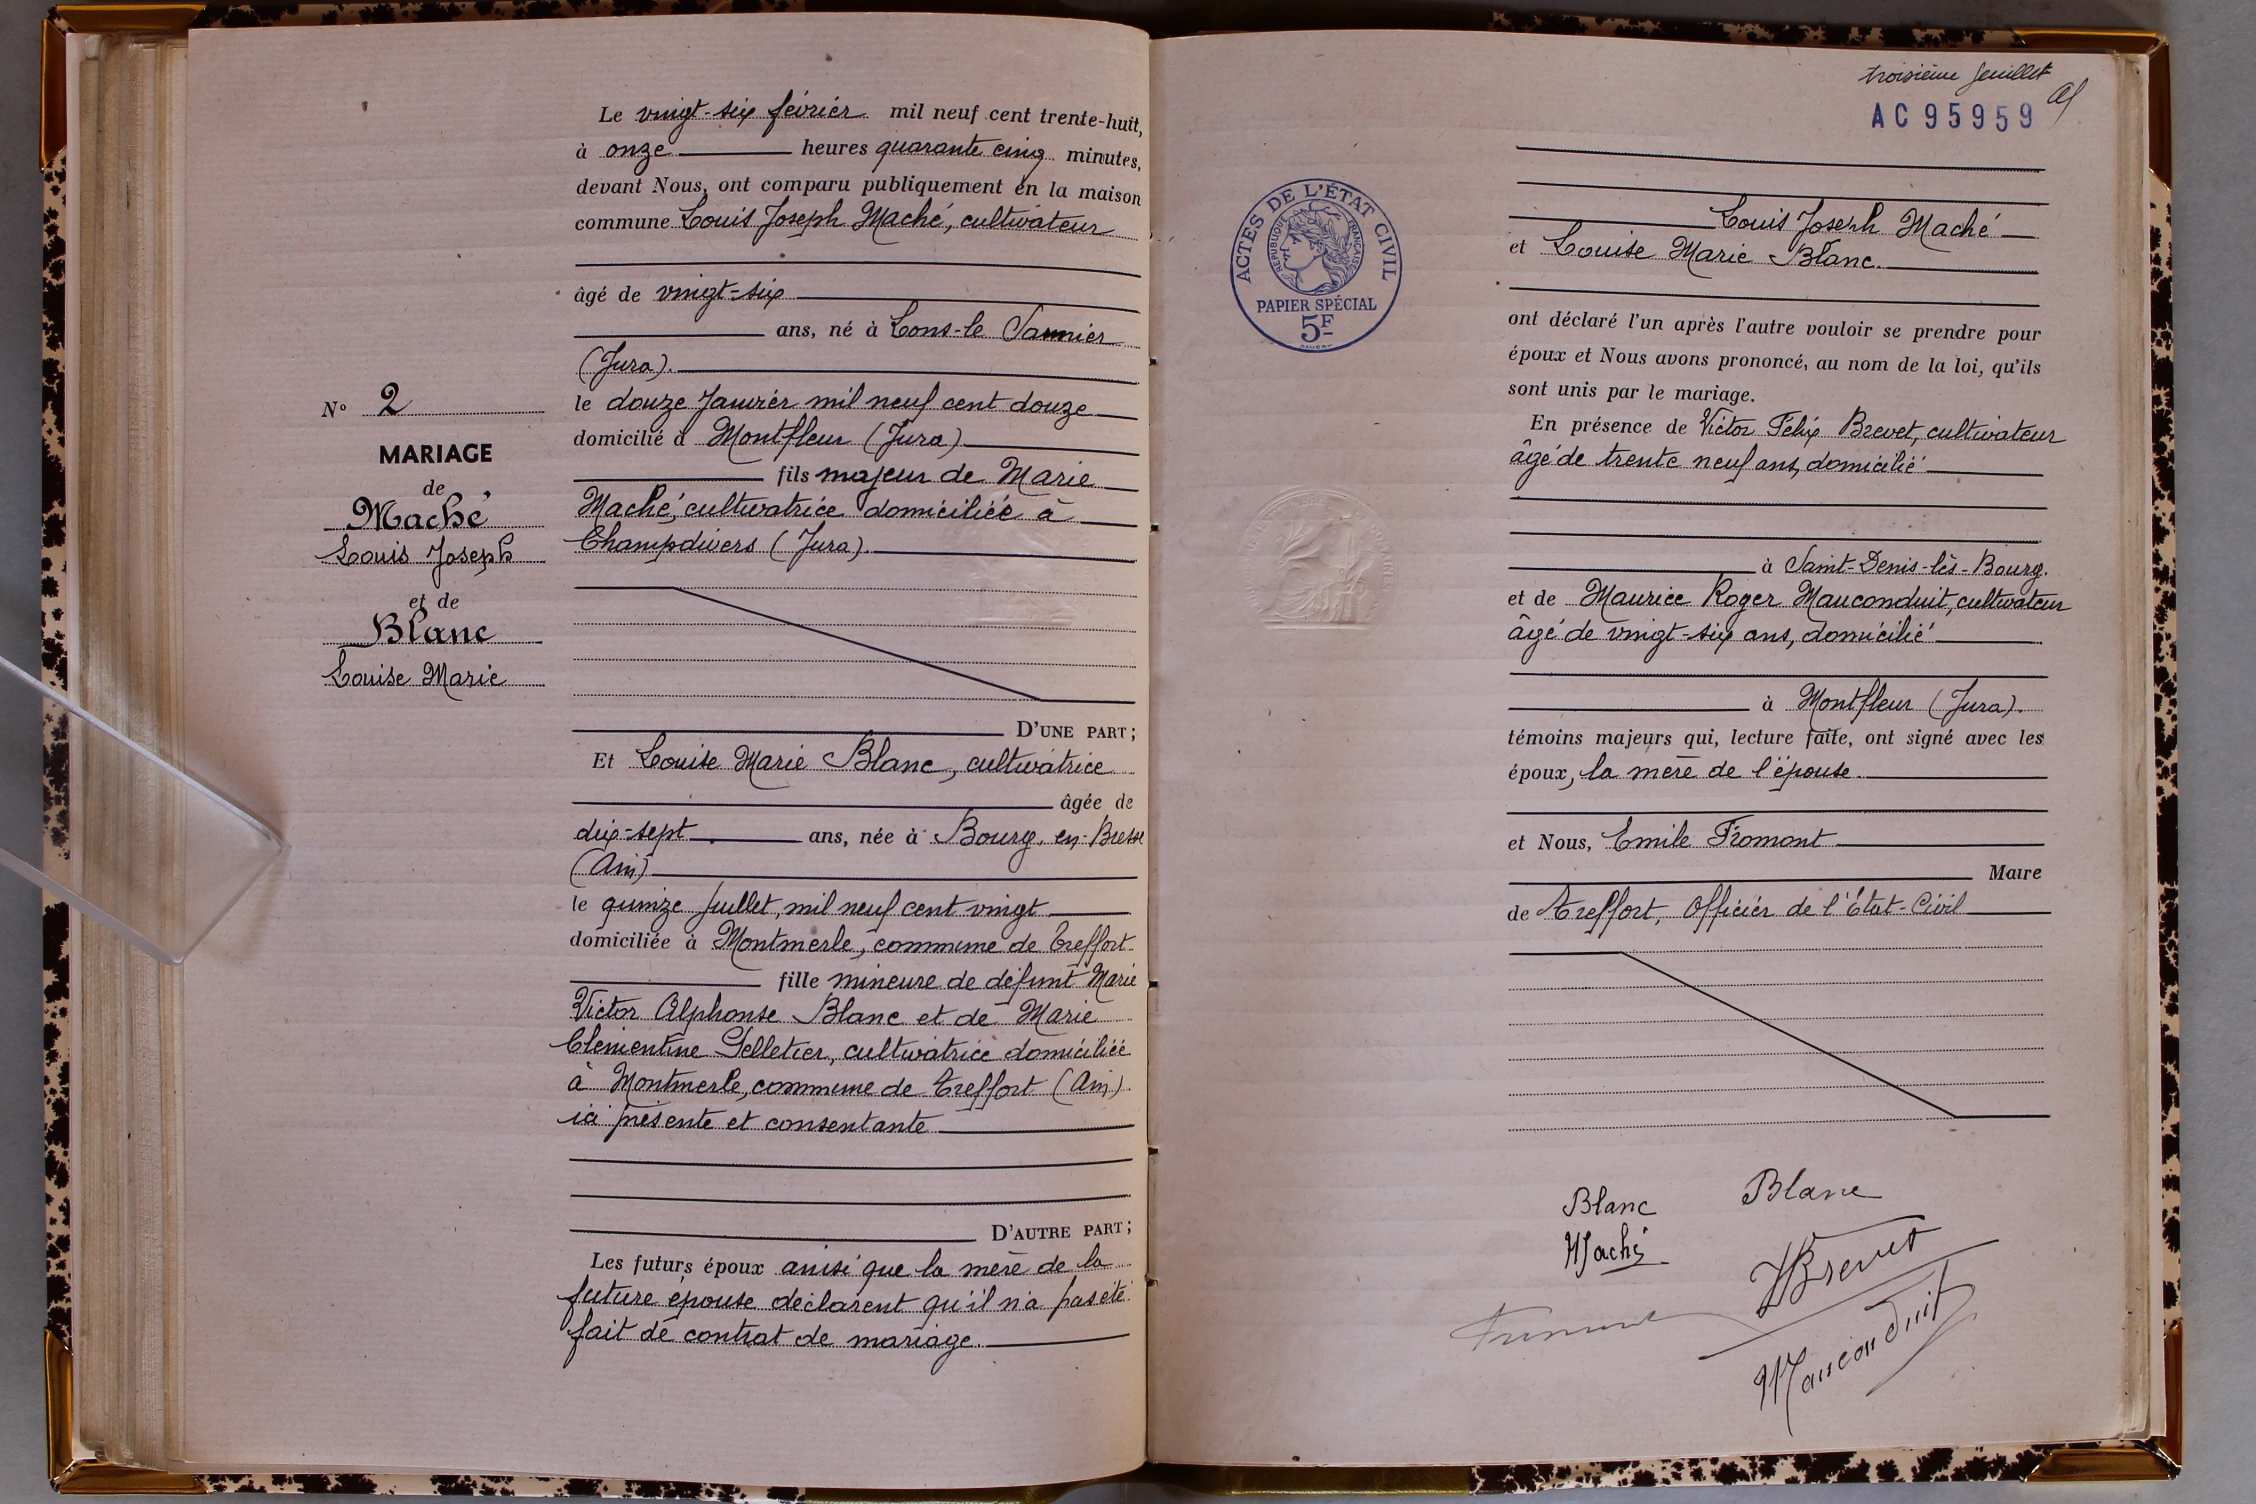 Le vingt-six février mil neuf cent trente-huit,
à onze heures quarante cinq minutes,
devant Nous, ont comparu publiquement en la maison
commune Louis Joseph Maché, cultivateur
âgé de vingt-six
ans, né à Lons-le Saunier
(Jura).
le douze Janvier mil neuf cent douze
domicilié à Montfleur (Jura)
fils majeur de Marie
Maché, cultivatrice domiciliée à
Champdivers (Jura).
N° 2
MARIAGE
de
Maché
Louis Joseph
et de
Blanc
Louise Marie
D'UNE PART;
Et Louise Marie Blanc, cultivatrice
âgée de
dix-sept ans, née à Bourg-en-Bresse
(Ain)
le quinze Juillet, mil neuf cent vingt
domiciliée à Montmerle, commune de Treffort
fille mineure de défunt Marie
Victor Alphonse Blanc et de Marie
Clémentine Pelletier, cultivatrice domiciliée
à Montmerle, commune de Treffort (Ain).
ici présente et consentante
D'AUTRE PART;
Les futurs époux ainsi que la mère de la
future épouse déclarent qu'il n'a pas été
fait de contrat de mariage.
troisième feuillet
AC 95959
ACTES DE L'ÉTAT CIVIL
RÉPUBLIQUE FRANÇAISE
PAPIER SPÉCIAL
5F
Louis Joseph Maché
et Louise Marie Blanc.
ont déclaré l'un après l'autre vouloir se prendre pour
époux et Nous avons prononcé, au nom de la loi, qu'ils
sont unis par le mariage.
En présence de Victor Félix Brevet, cultivateur
âgé de trente neuf ans, domicilié
à Saint-Denis-lès-Bourg.
et de Maurice Roger Mauconduit, cultivateur
âgé de vingt-six ans, domicilié
à Montfleur (Jura).
témoins majeurs qui, lecture faite, ont signé avec les
époux, la mère de l'épouse.
et Nous, Emile Fromont
Maire
de Treffort, Officier de l'État-Civil
Blanc Blanc
Maché
VBrevet
Fromont
Mauconduit